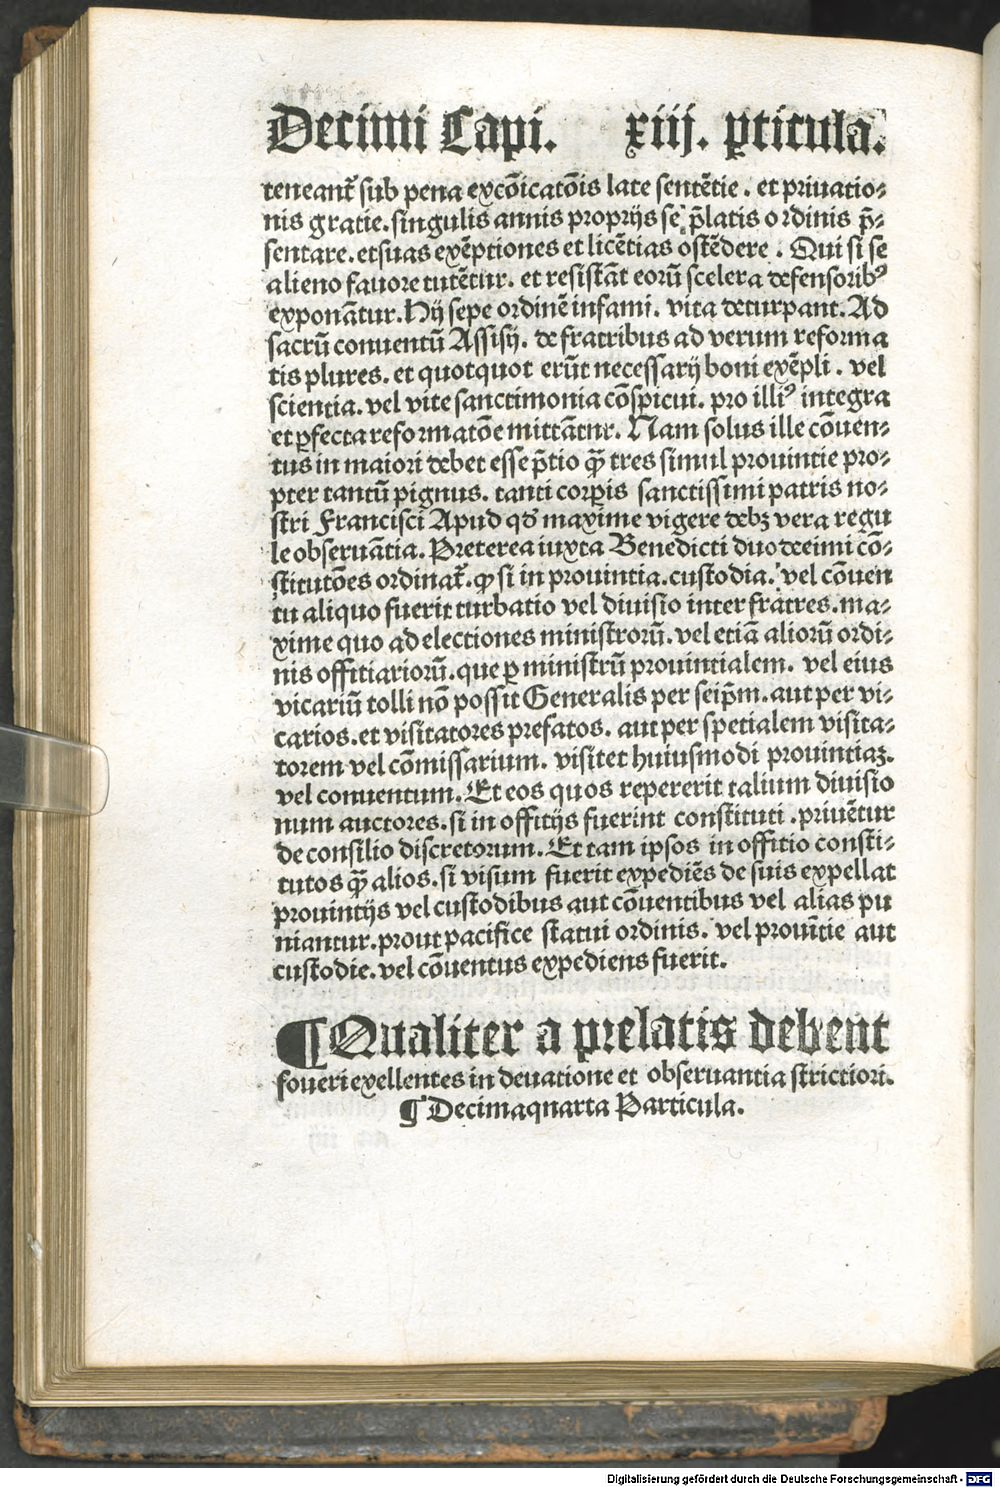 Decimi Capi. xiij. ꝑticula.
teneant᷑ sub pena excōicatōis late sentētie . et priuatio⸗
nis gratie. singulis annis proprijs se p̄latis ordinis p̄⸗
sentare. et suas exēptiones et licētias ostēdere . Qui si se
alieno fauore tutētur. et resistāt eorū scelera defensorib⁹
exponātur. Hij sepe ordinē infami. vita deturpant. Ad
sacrū conuentū Assisij. de fratribus ad verum reforma
tis plures. et quotquot erūt necessarij boni exēpli . vel
scientia. vel vite sanctimonia cōspicui. pro illi⁹ integra
et ꝑfecta reformatōe mittātur. Nam solus ille cōuen⸗
tus in maiori debet esse p̄tio q̄ꝫ tres simul prouintie pro⸗
pter tantū pignus. tanti corꝑis sanctissimi patris no⸗
stri Francisci Apud qđ maxime vigere debꝫ vera regu
le obseruātia. Preterea iuxta Benedicti duodeeimi cō⸗
stitutōes ordinat᷑. ꝙ si in prouintia. custodia. vel cōuen
tu aliquo fuerit turbatio vel diuisio inter fratres. ma⸗
xime quo ad electiones ministrorū. vel etiā aliorū ordi⸗
nis offitiariorū. que ꝑ ministrū prouintialem. vel eius
vicariū tolli nō possit Generalis per seip̄m. aut per vi⸗
carios. et visitatores prefatos. aut per spetialem visita⸗
torem vel cōmissarium. visitet huiusmodi prouintiaꝫ.
vel conuentum. Et eos quos repererit talium diuisio
num auctores. si in offitijs fuerint constituti . priuētur
de consilio discretorum. Et tam ipsos in offitio consti⸗
tutos q̄ꝫ alios. si visum fuerit expediēs de suis expellat
prouintijs vel custodibus aut cōuentibus vel alias pu
niantur. prout pacifice statui ordinis. vel prouītie aut
custodie. vel cōuentus expediens fuerit.
¶ Qualiter a prelatis debent
foueri exellentes in deuatione et obseruantia strictiori.
¶ Decimaquarta Particula.
Digitalisierung gefördert durch die Deutsche Forschungsgemeinschaft - DFG